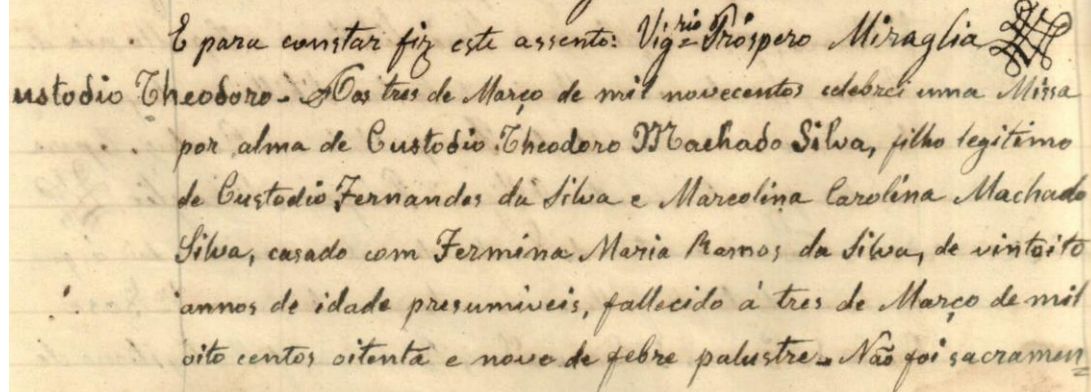 E para constar fiz este assento: Vig.rio Prospero Miraglia
ustodio Theodoro - Aos tres de Março de mil novecentos celebrei uma Missa
por alma de Custodio Theodoro Machado Silva, filho legitimo
de Custodio Fernandes da Silva e Marcolina Carolina Machado
Silva, casado com Fermina Maria Ramos da Silva, de vintoito
annos de idade presumiveis, fallecido á tres de Março de mil
oito centos oitenta e nove de febre palustre. Não foi sacramen=